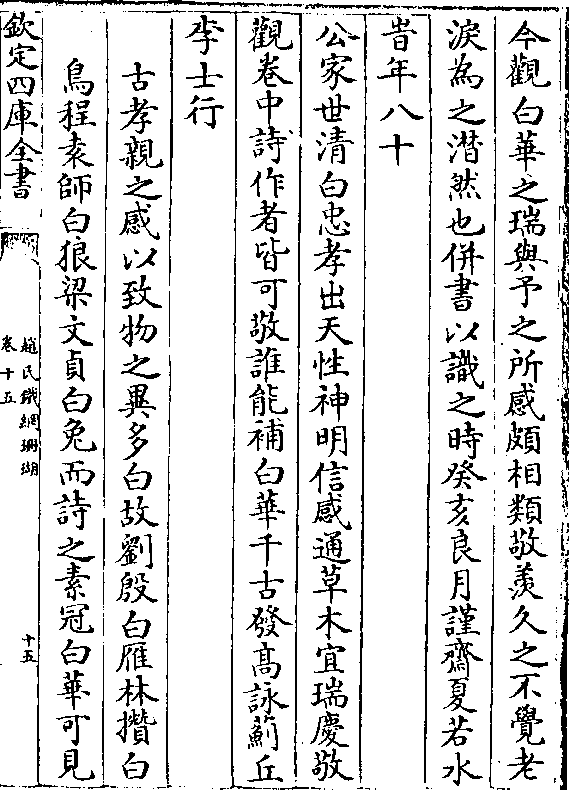 今觀白華之瑞與予之所感頗相類敬羨久之不覺老
淚為之潸然也併書以識之時癸亥良月謹齋夏若水
旹年八十
公家世清白忠孝出天性神明信感通草木宜瑞慶敬
觀卷中詩作者皆可敬誰能補白華千古發髙詠薊丘
李士行
古孝親之感以致物之異多白故劉殷白雁林攢白
鳥程袁師白狼梁文貞白兔而詩之素冠白華可見
欽定四庫全書
趙氏鐵網珊瑚
卷十五
十五